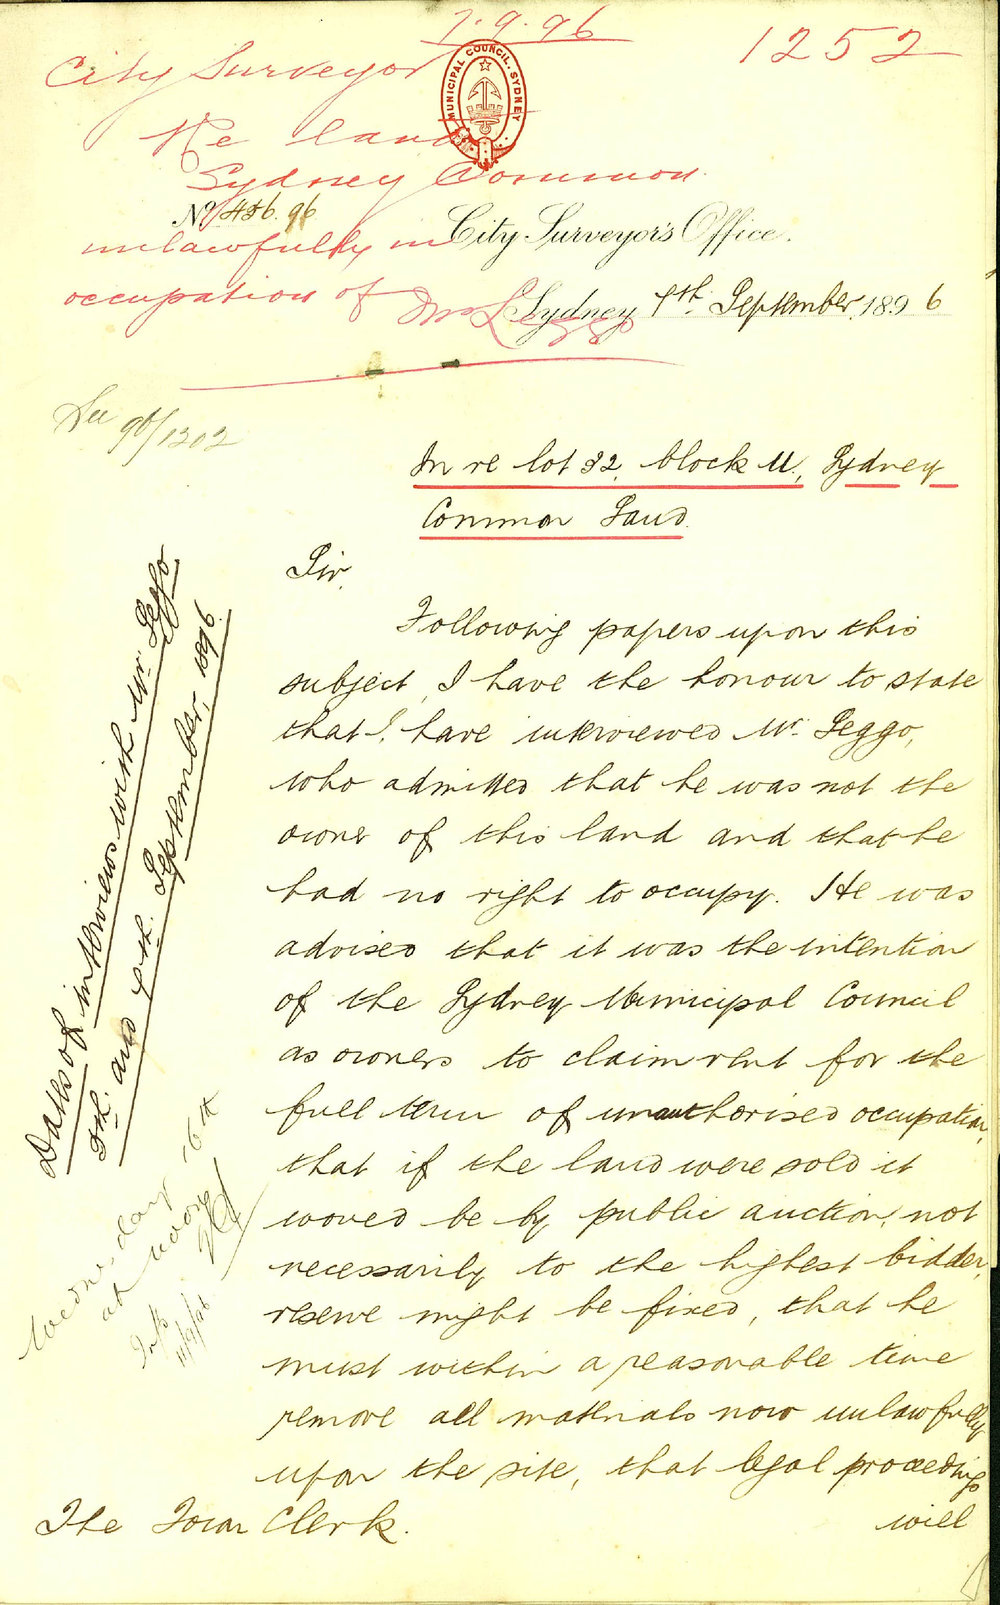 7.9.96
1252
City Surveyor
MUNICIPAL COUNCIL. SYDNEY
Re land
Sydney Common
unlawfully in
occupation of Mr Leggo
No 456.96
City Surveyor's Office.
Sydney 7th. September, 1896
See 96/1302
In re lot 32, block M., Sydney
Common Land.
Sir,
Following papers upon this
subject, I have the honour to state
that I have interviewed Mr. Leggo,
who admitted that he was not the
owner of this land and that he
had no right to occupy. He was
advised that it was the intention
of the Sydney Municipal Council
as owners to claim rent for the
full term of unauthorised occupation,
that if the land were sold it
would be by public auction, not
necessarily to the highest bidder,
reserve might be fixed, that he
must within a reasonable time
remove all materials now unlawfully
upon the site, that legal proceedings
will
The Town Clerk.
Dates of interviews with Mr. Leggo
5th. and 7th. September, 1896.
Wednesday 16th
at noon